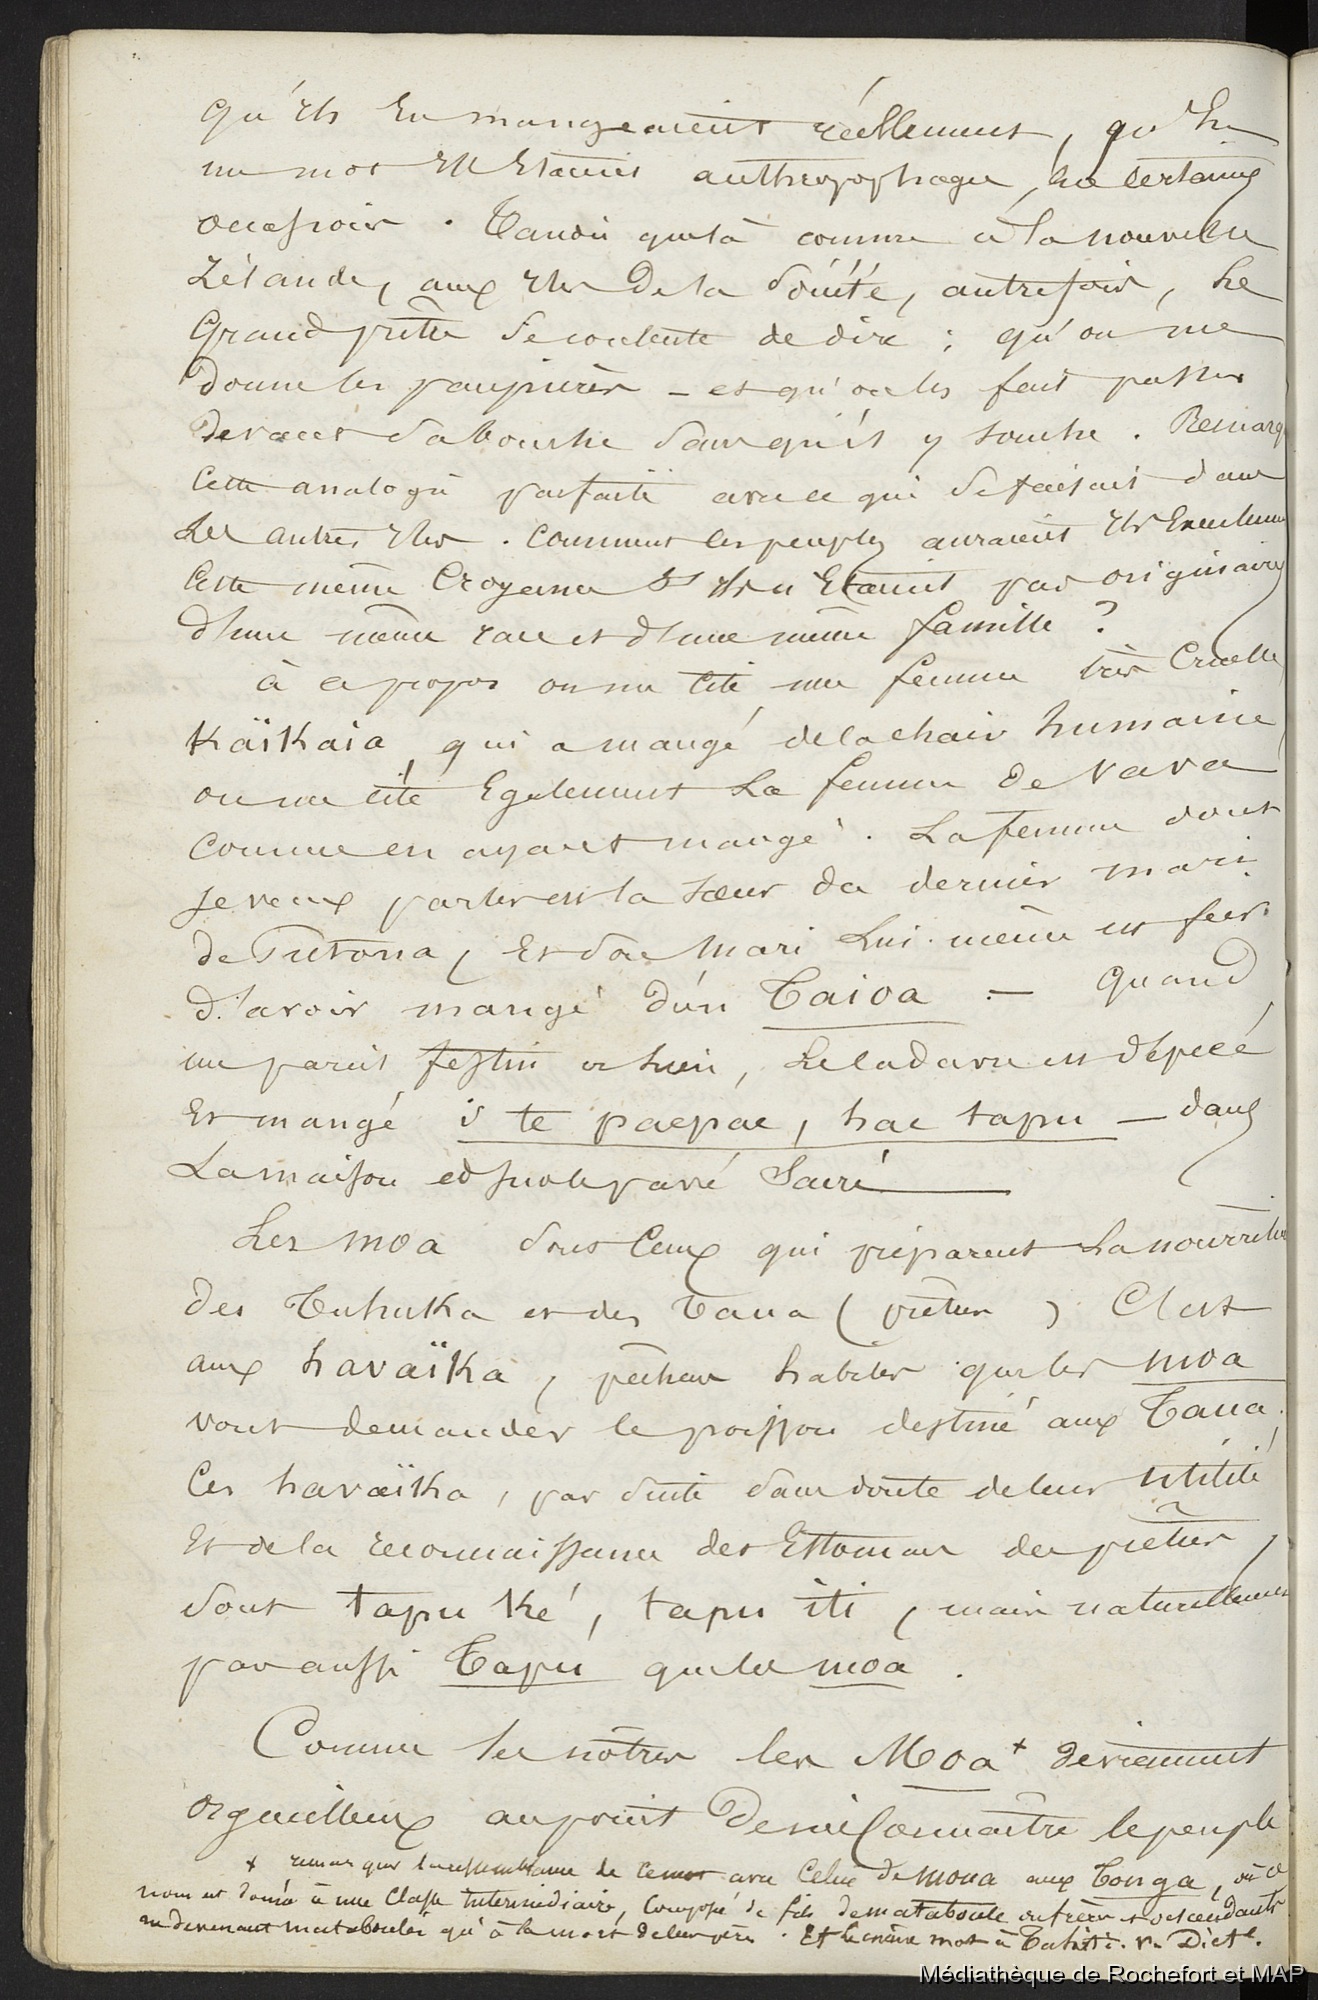 qu'ils en mangeaient réellement, qu'en
un mot ils étaient anthropophages, en certaines
occasions. Tandis que là comme à la nouvelle
Zélande, aux iles de la Société, autrefois, le
Grand prêtre se contente de dire : qu'on me
donne les paupières – et qu'on les fait passer
devant sa bouche sans qu'il y touche. Remarq
cette analogie parfaite avec ce qui se faisait dans
les autres iles. Comment les peuples auraient ils
cette même croyance s'ils n'étaient pas originaires
d'une même race et d'une même famille ?
à ce propos on me cite une femme très cruelle
Kaïkaia, qui a mangé de la chair humaine
on me cite également la femme de Vava
comme en ayant mangé. La femme dont
je veux parler est la sœur du dernier mari
de Tutona, et son mari lui-même est fier
d'avoir mangé d'un Taioa – quand
un pareil festin a lieu, le cadavre est dépecé
et mangé i te paepae, hae tapu – dans
la maison et sur le pavé sacré
Les moa sont ceux qui préparent la nourritu
des Tuhuka et des Taua (prêtres) C'est
aux havaïka, pêcheurs habiles que les moa
vont demander le poisson destiné aux Taua.
Ces havaïka, par suite sans doute de leur utilité
et de la reconnaissance des estomacs des prêtres
sont tapu ké, tapu iti, mais naturellement
pas aussi Tapu que les moa.
Comme les nôtres les Moa + deviennent
orgueilleux au point de méconnaitre le peuple
+ remarquez la ressemblance de ce mot avec celui de moua aux Tonga, où ce
nom est donné à une classe intermédiaire, composée de fils de mataboule ou frères et descendants
ne devenant mataboules qu'à la mort de leur père. Et le même mot à Tahiti. v. Dict.
Médiathèque de Rochefort et MAP